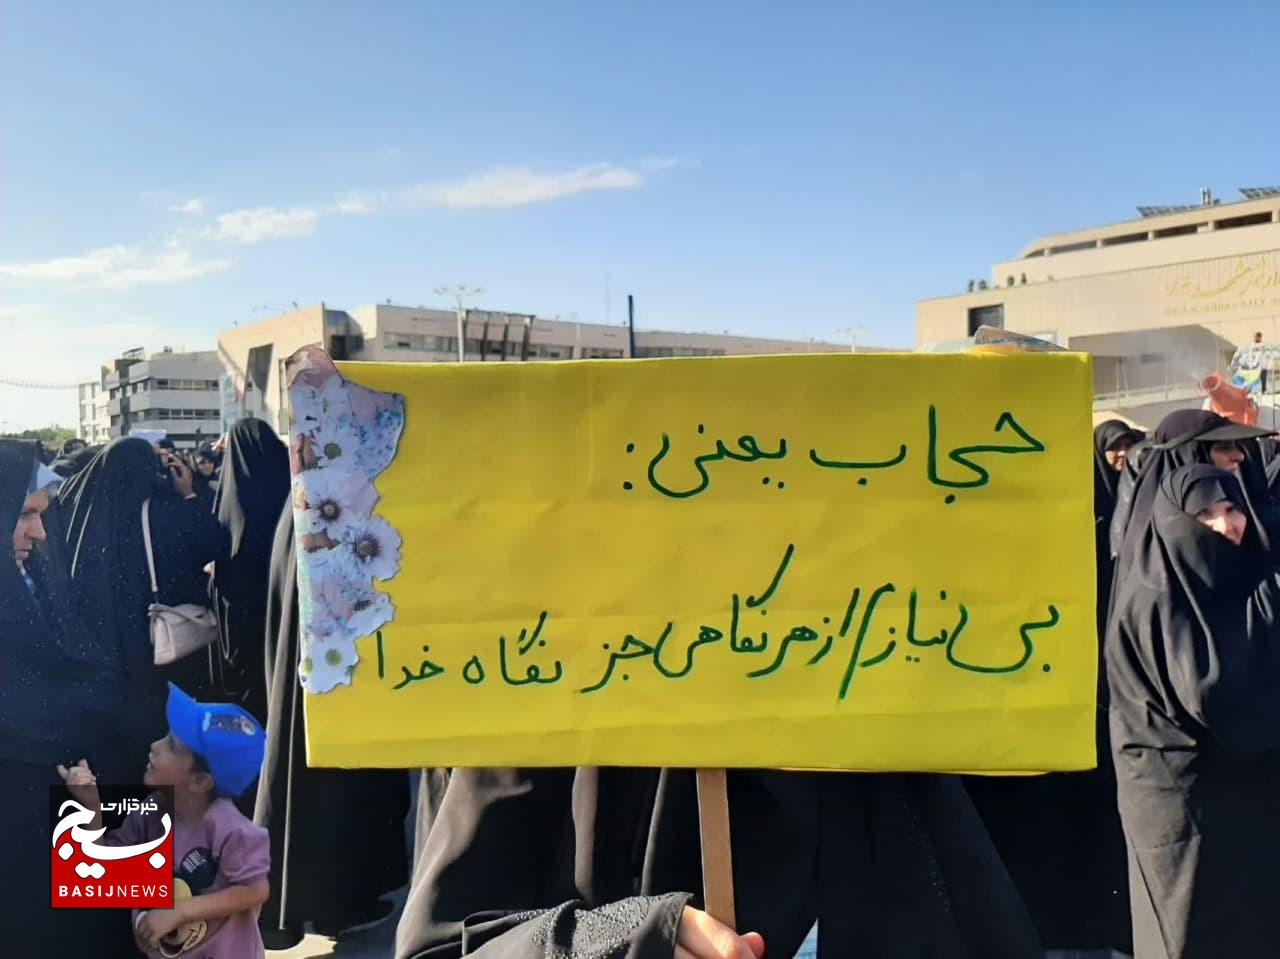 حجاب یعنی:
بی نیازی از هر نگاهی جز نگاه خدا
خبرگزاری
بسیج
BASIJNEWS